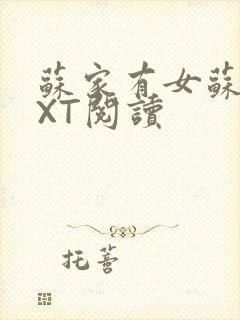 蘇家有女蘇
XT閱讀
托薔